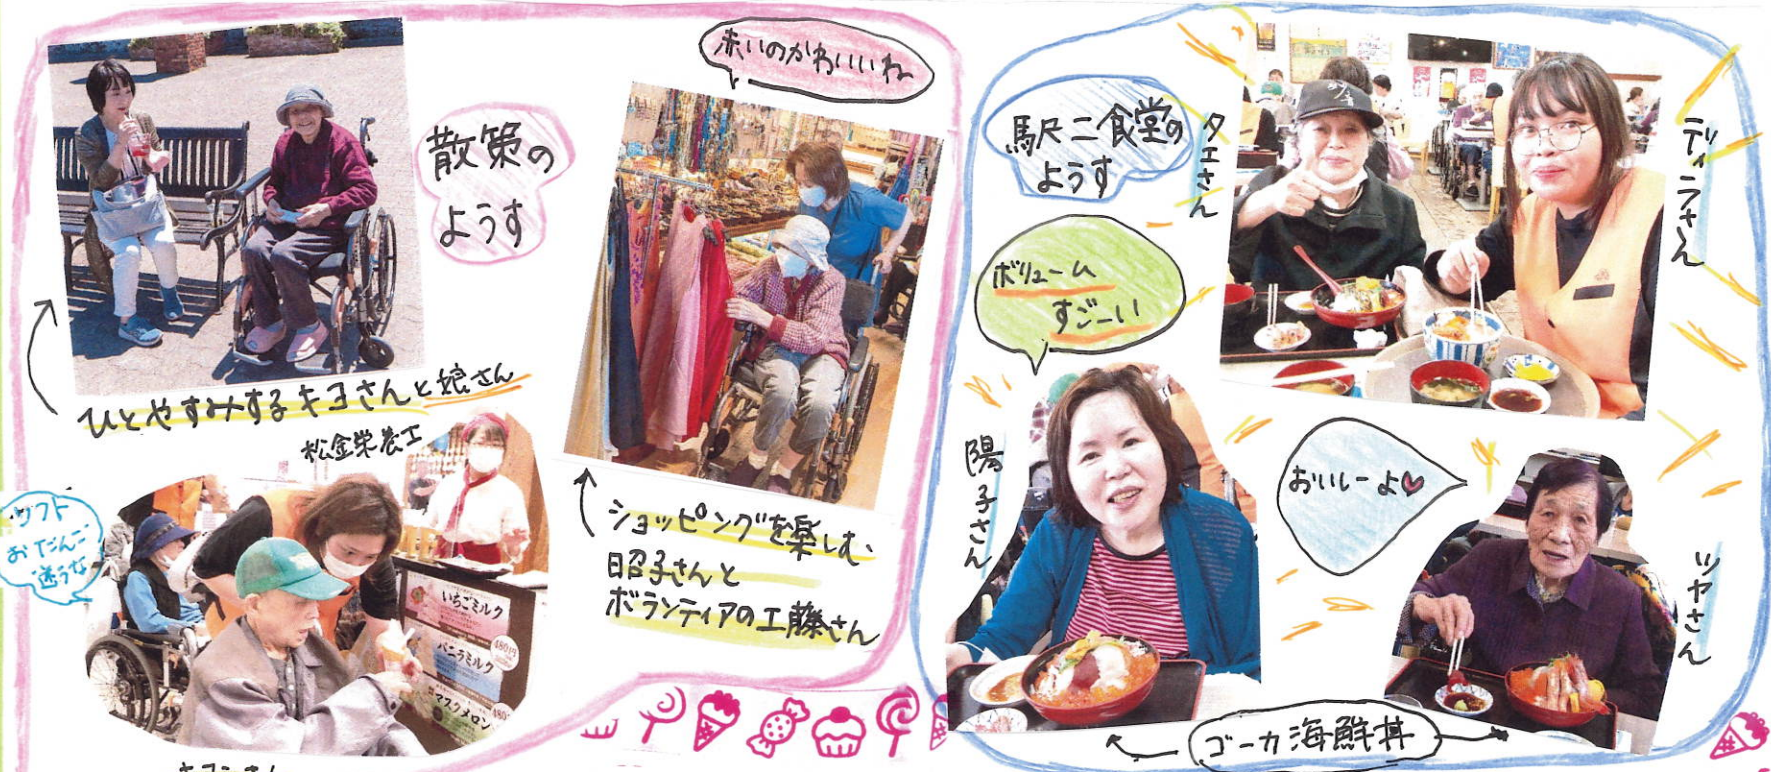 散策の
ようす
赤いのかわいいね
ひとやすみするキヨさんと娘さん
松金栄養士
ソフト
おだんご
迷うな
いちごミルク
480円
バニラミルク
マスクメロン
480
ショッピングを楽しむ
昭子さんと
ボランティアの工藤さん
馬尺二食堂の
ようす
タエさん
ディラさん
ボリューム
すごーい
陽子さん
おいしーよ
ツヤさん
ゴーカ海鮮丼